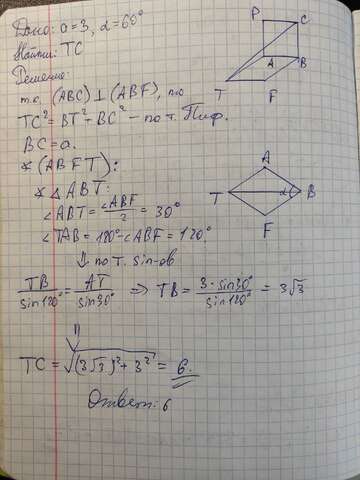 Дано: a=3, α=60°
Найти: TC
Решение:
т.к. (ABC) ⊥ (ABF), то
TC² = BT² + BC² - по т. Пиф.
BC = a.
∢ (ABFT):
∢ △ ABT:
∠ABT = ∠ABF/2 = 30°
∠TAB = 180° - ∠ABF = 120°
⇓ по т. sin-ов
TB/sin120° = AT/sin30° ⇒ TB = 3·sin30°/sin120° = 3√3
⇓
TC = √((3√3)² + 3²) = 6.
Ответ: 6
P
C
A
B
T
F
A
T
α
B
F